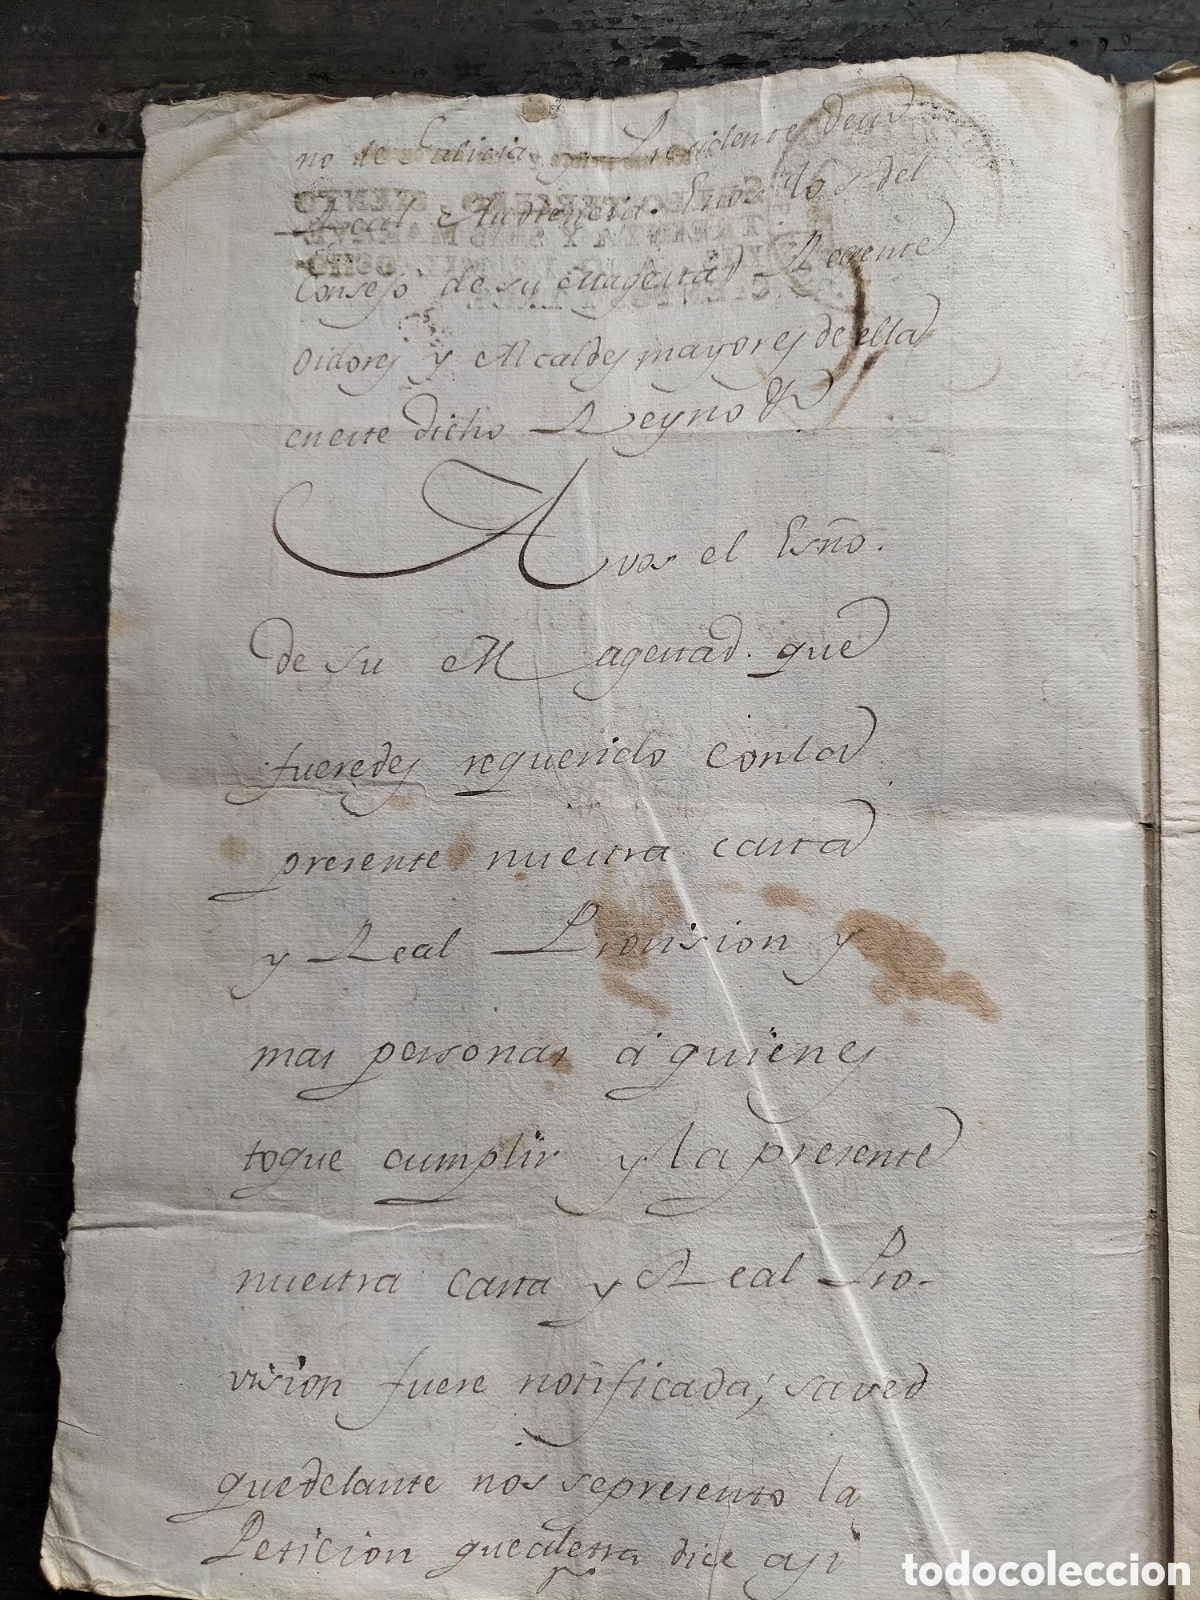 no de Galicia, y Presidente de su
Real Audiencia. En los del
Consejo de su Magestad Regente
Oidores y Alcaldes mayores de ella
en este dicho Reyno &
A vos el Esño.
de su Magestad. que
fueredes requerido con la
presente nuestra carta
y Real Provision y
mas personas á quienes
toque cumplir y la presente
nuestra Carta y Real Pro-
vision fuere notificada; saved
que delante nos se presento la
Peticion que a letra dice asi
todocoleccion